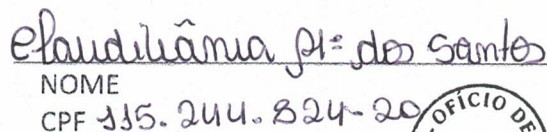 Claudiliânia Mª dos Santos
NOME
CPF 115.244.824-20
OFÍCIO DE